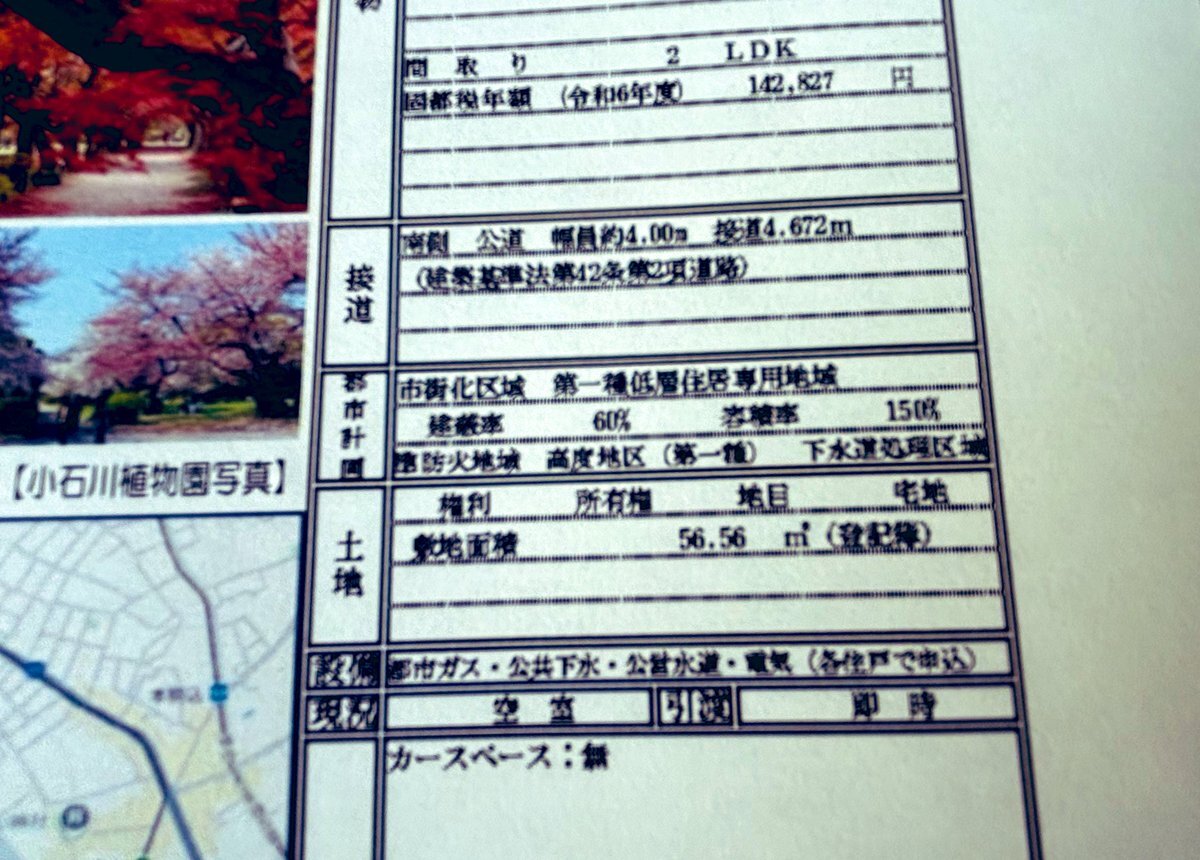 間取り 2 LDK
固都税年額 (令和6年度) 142,827 円
接道
南側 公道 幅員約4.00m 接道4.672m
(建築基準法第42条第2項道路)
都市計画
市街化区域 第一種低層住居専用地域
建蔽率 60% 容積率 150%
準防火地域 高度地区(第一種) 下水道処理区域
【小石川植物園写真】
土地
権利 所有権 地目 宅地
敷地面積 56.56 ㎡(登記簿)
設備 都市ガス・公共下水・公営水道・電気(各住戸で申込)
現況 空室 引渡 即時
カースペース:無
本駒込